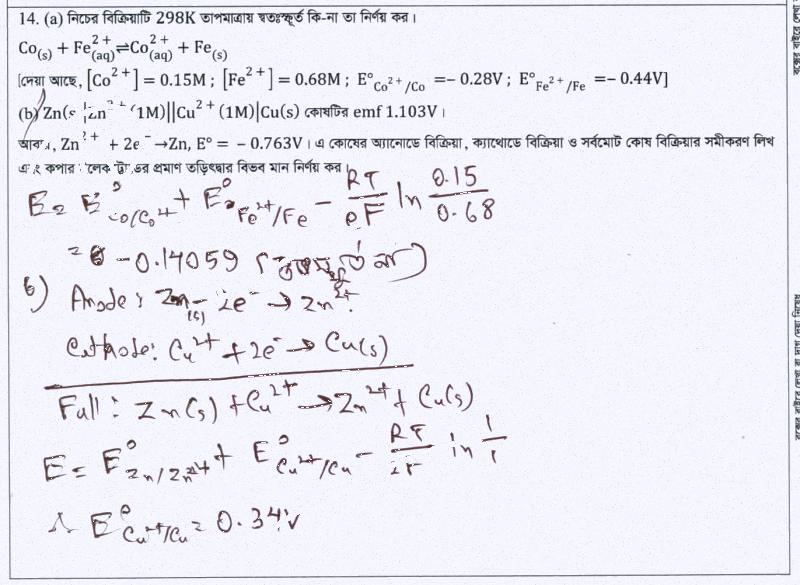 14. (a) নিচের বিক্রিয়াটি 298K তাপমাত্রায় স্বতঃস্ফূর্ত কি-না তা নির্ণয় কর।
Co(s) + Fe²⁺(aq) ⇌ Co²⁺(aq) + Fe(s)
[দেয়া আছে, [Co²⁺] = 0.15M ; [Fe²⁺] = 0.68M ; E°Co²⁺/Co = - 0.28V ; E°Fe²⁺/Fe = - 0.44V]
(b) Zn(s Zn²⁺ (1M)||Cu²⁺ (1M)|Cu(s) কোষটির emf 1.103V।
Zn²⁺ + 2e⁻ →Zn, E° = − 0.763V। এ কোষের অ্যানোডে বিক্রিয়া, ক্যাথোডে বিক্রিয়া ও সর্বমোট কোষ বিক্রিয়ার সমীকরণ লিখ
কপার প্রমাণ তড়িৎদ্বার বিভব মান নির্ণয় কর।
E = E°Co/Co²⁺ + E°Fe²⁺/Fe − RT/eF ln 0.15/0.68
= -0.14059 (স্বতঃস্ফূর্ত না)
b) Anode: Zn(s) - 2e⁻ → Zn²⁺
Cathode: Cu²⁺ + 2e⁻ → Cu(s)
Full: Zn(s) + Cu²⁺ → Zn²⁺ + Cu(s)
E = E°Zn/Zn²⁺ + E°Cu²⁺/Cu − RT/2F ln 1/1
∴ E°Cu²⁺/Cu = 0.34V